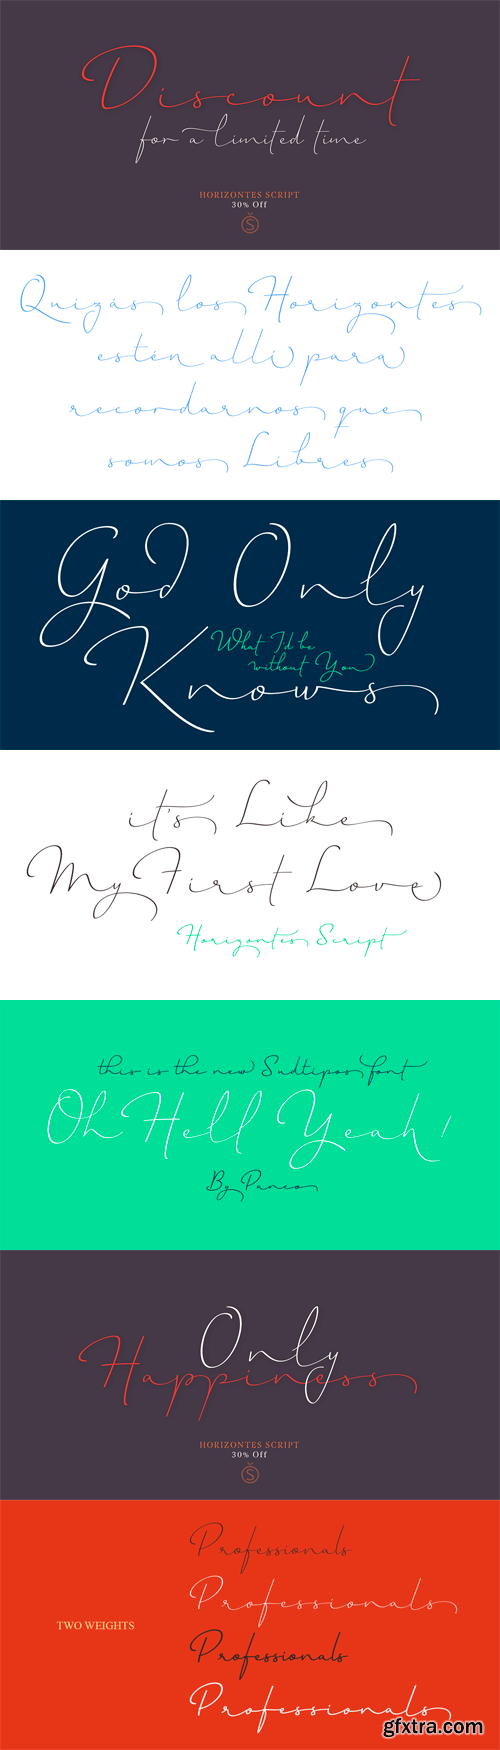 Discount
for a limited time
HORIZONTES SCRIPT
30% Off
Š
Quizás los Horizontes
estén allí para
recordarnos que
somos Libres
God Only
What I'd be
without You
Knows
it's Like
My First Love
Horizontes Script
this is the new Sudtipos font
Oh Hell Yeah!
By Panco
Only
Happiness
HORIZONTES SCRIPT
30% Off
Š
Professionals
Professionals
TWO WEIGHTS
Professionals
Professionals
gfxtra.com